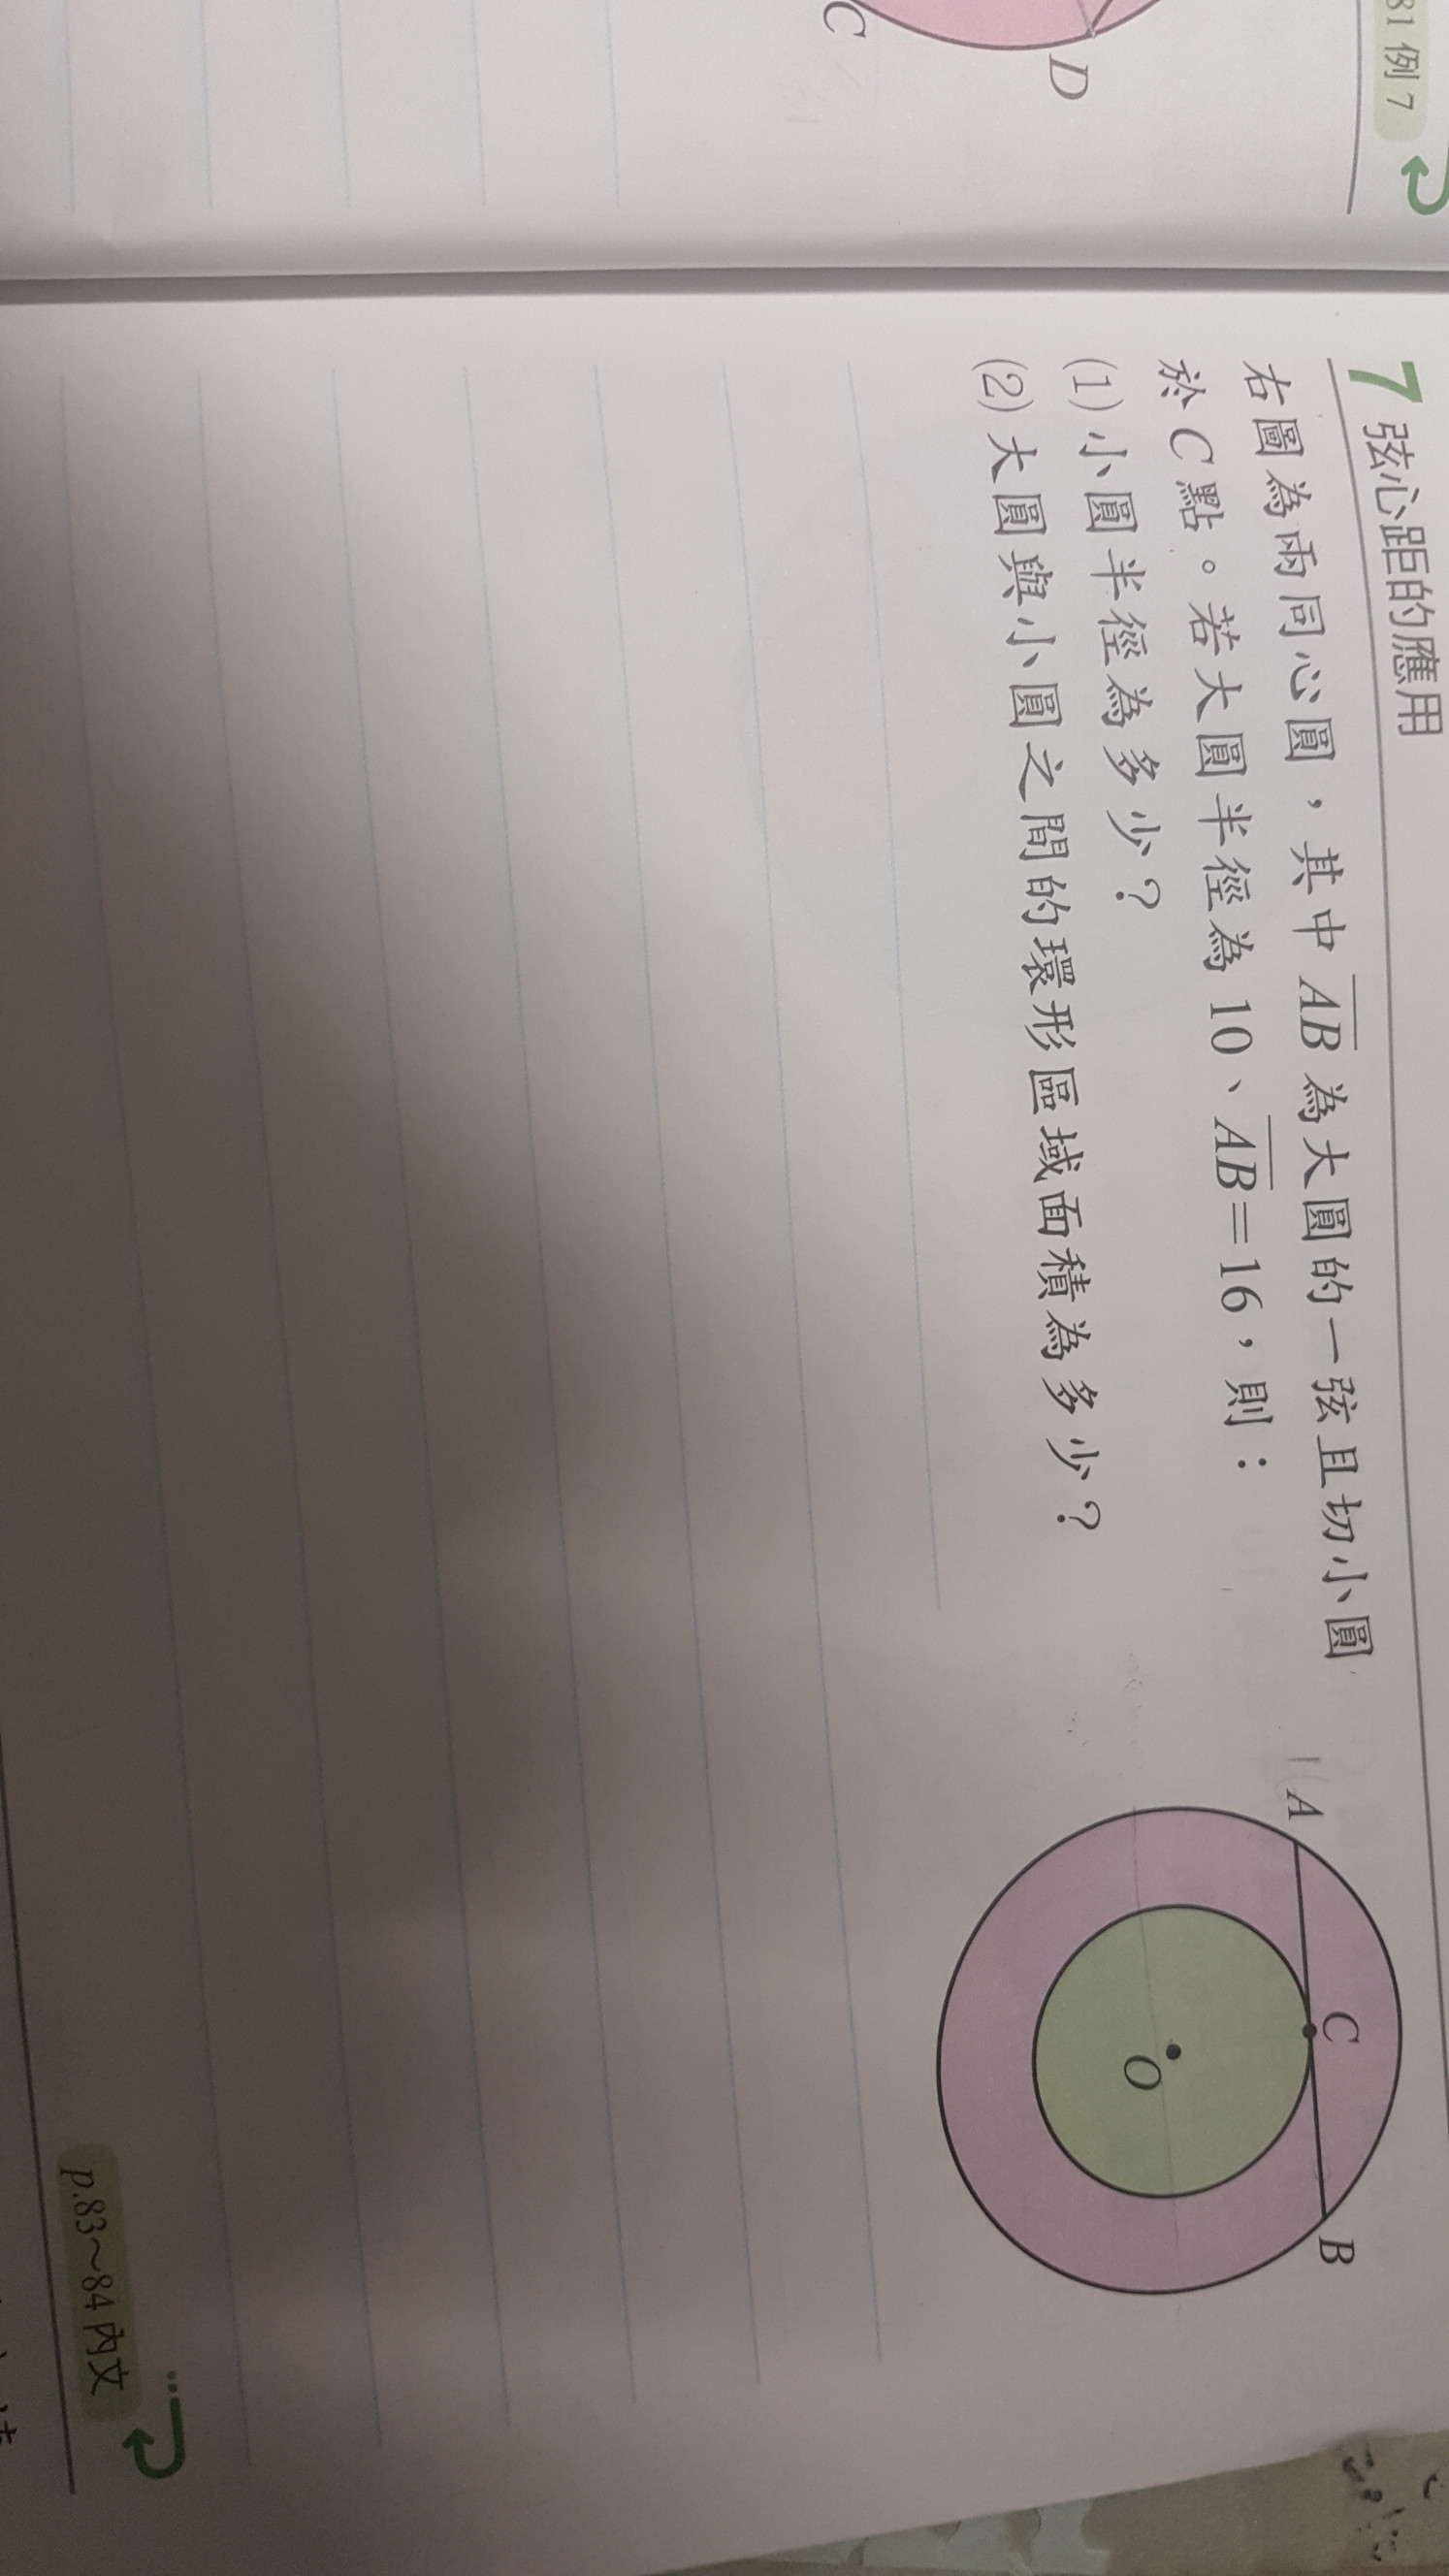 81 例 7
C
D
7 弦心距的應用
右圖為兩同心圓，其中 AB 為大圓的一弦且切小圓
於 C 點。若大圓半徑為 10、AB=16，則：
(1) 小圓半徑為多少？
(2) 大圓與小圓之間的環形區域面積為多少？
A
C
B
O
p.83~84 內文